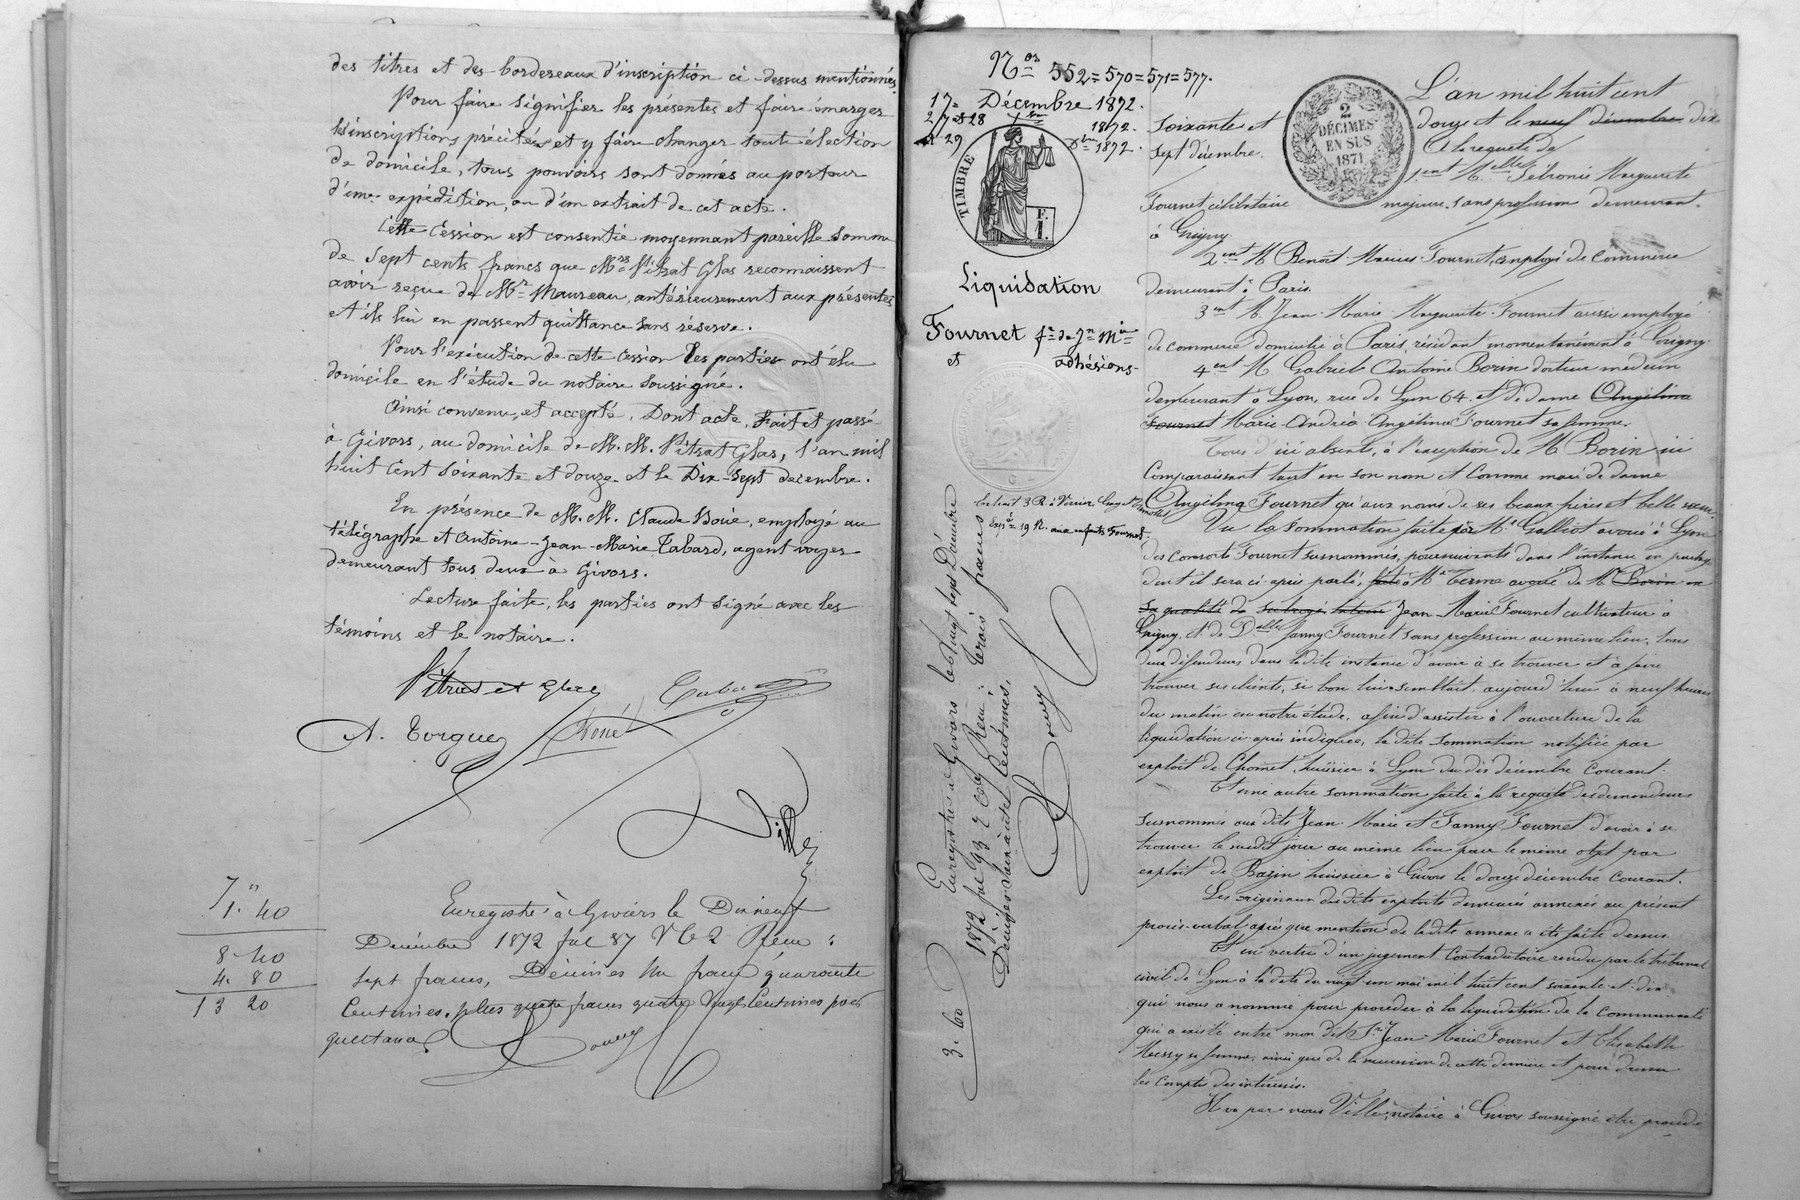 des titres et des bordereaux d'inscription ci-dessus mentionnés.
Pour faire signifier les présentes et faire émarger
les inscriptions précitées et y faire changer toute élection
de domicile, tous pouvoirs sont donnés au porteur
d'une expédition, ou d'un extrait de cet acte.
Cette Cession est consentie moyennant pareille somme
de Sept cents francs que Mrs Pitrat Glas reconnaissent
avoir reçue de Mr Maureau, antérieurement aux présentes
et ils lui en passent quittance sans réserve.
Pour l'exécution de cette cession les parties ont élu
domicile en l'étude du notaire soussigné.
Ainsi convenu, et accepté. Dont acte, Fait et passé
à Givors, au domicile de M.M. Pitrat Glas, l'an mil
huit Cent soixante et douze et le Dix-sept décembre.
En présence de M.M. Claude Boué, employé au
télégraphe et Antoine-Jean-Marie Tabard, agent voyer
demeurant tous deux à Givors.
Lecture faite, les parties ont signé avec les
témoins et le notaire.
Pitrat et Glas
Tabard
A. Torgue
Boué
Ville
7 "
1. 40
8 40
4. 80
13 20
Enregistré à Givors le Dix neuf
Décembre 1872 fol 87 V C 2 Reçu :
sept francs, Décimes Un franc quarante
Centimes. plus quatre francs quatre Vingts Centimes pour
quittance
Nos 552 = 570 = 571 = 577.
17 = Décembre 1872.
27 & 28
1872.
& 29
1872.
TIMBRE
F.
I.
Liquidation
Fournet fe de Jn Mie
et adhésions
Enregistré à Givors le Vingt sept Décembre
1872 fol 93 Reçu : trois francs
Décimes soixante Centimes.
3. 60
2
DÉCIMES
EN SUS
1871
L'an mil huit cent
soixante et douze et le neuf décembre dix
sept décembre. A la requête de
1ent Melle Pétronie Marguerite
Fournet célibataire majeure, sans profession demeurant
à Grigny
2ent M Benoît Marius Fournet, employé de commerce
demeurant à Paris.
3ent M. Jean Marie Marguerite Fournet aussi employé
de commerce domicilié à Paris, résidant momentanément à Grigny
4ent M Gabriel Antoine Borin docteur médecin
demeurant à Lyon, rue de Lyon 64. et de dame Angelina
Fournet Marie Andréa Angélina Fournet sa femme.
Tous d'ici absents, à l'exception de M Borin ici
Comparaissant tant en son nom et comme mari de dame
Angélina Fournet qu'aux noms de ses beaux frères et belle soeur
Vu la sommation faite par Me Galliot avoué à Lyon
des consorts Fournet susnommés, poursuivants dans l'instance en partage
dont il sera ci-après parlé, à Me Terme avoué de M Borin en
sa qualité de Jean-Marie Fournet cultivateur à
Grigny, et de Delle Fanny Fournet sans profession au même lieu, tous
deux défendeurs dans la dite instance d'avoir à se trouver et à faire
trouver ses clients, si bon leur semblait, aujourd'hui à neuf heures
du matin en notre étude, afin d'assister à l'ouverture de la
liquidation ci-après indiquée, la dite sommation notifiée par
exploit de Chomet, huissier à Lyon du dix décembre Courant
Et une autre sommation faite à la requête des demandeurs
susnommés aux dits Jean-Marie et Fanny Fournet d'avoir à se
trouver le susdit jour au même lieu pour le même objet par
exploit de Bazin huissier à Givors le douze décembre Courant.
Les originaux des dits exploits demeurés annexés au présent
procès-verbal après que mention de la dite annexe a été faite dessus
Et en vertu d'un jugement Contradictoire rendu par le tribunal
civil de Lyon à la date du vingt-un mai mil huit cent soixante et dix
qui nous a nommé pour procéder à la liquidation de la Communauté
qui a existé entre mon dit Sr Jean-Marie Fournet et Elisabeth
sa femme, ainsi que de la succession de cette dernière et pour dresser
les Comptes des intéressés.
Il va par nous Ville, notaire à Givors soussigné être procédé